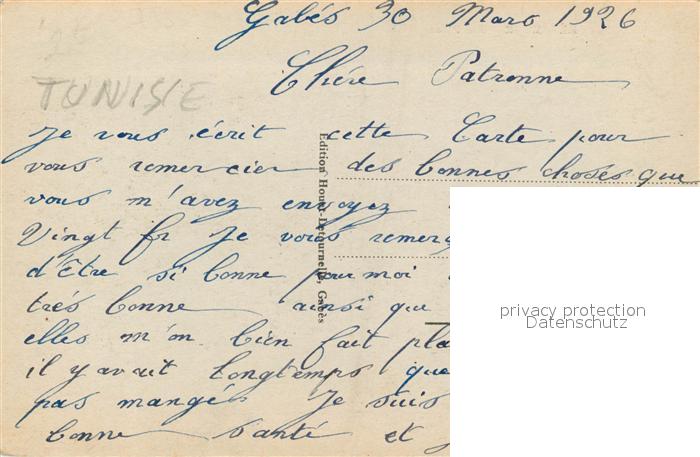 Gabés 30 Mars 1926
TUNISIE
Chére Patronne
Je vous écrit cette Carte pour
vous remercier des bonnes choses que
vous m'avez envoyez
Vingt fr Je vous remerç
d'être si bonne pour moi
trés bonne ainsi que
elles m'on bien fait pla
il y avait longtemps que
pas mangé. Je suis
bonne santé et
Edition Houet-Detournelle, Gabès
privacy protection
Datenschutz